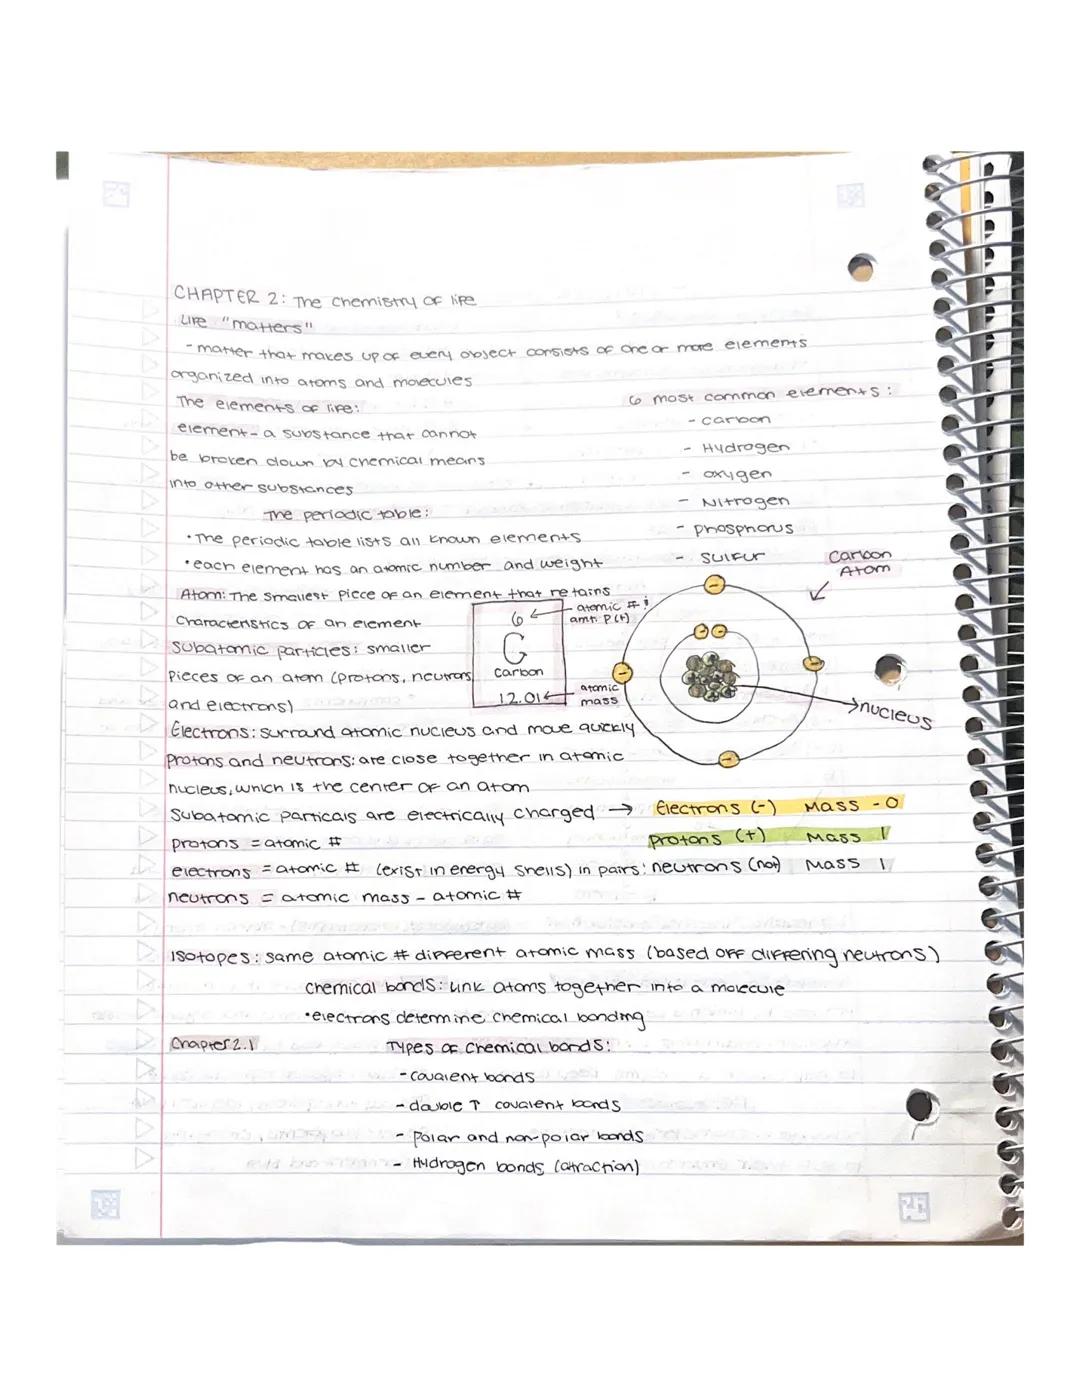 CHAPTER 2: The chemistry of life
Life "matters"
- matter that makes up of every object consists of one or more elements
organized into atoms and molecules
The elements of life:
6 most common elements:
element - a substance that cannot
- carbon
be broken down by chemical means
- Hydrogen
into other substances
- oxygen
The periodic table:
- Nitrogen
• The periodic table lists all known elements
- phosphorus
• each element has an atomic number and weight
- sulfur
Carbon
Atom
Atom: The smallest piece of an element that retains
characteristics of an element
6
atomic # :
amt. P(+)
C
carbon
12.01
atomic
mass
subatomic particles: smaller
pieces of an atom (protons, neutrons,
and electrons)
nucleus
Electrons: surround atomic nucleus and move quickly
protons and neutrons: are close together in atomic
nucleus, which is the center of an atom
Subatomic particals are electrically charged → Electrons (-) Mass - 0
protons = atomic #
protons (+) Mass 1
electrons = atomic # (exist in energy shells) in pairs: neutrons (not) Mass 1
neutrons = atomic mass - atomic #
Isotopes: same atomic # different atomic mass (based off differing neutrons)
chemical bonds: link atoms together into a molecule
• electrons determine chemical bonding
Chapter 2.1
Types of chemical bonds:
- covalent bonds
- double ↑ covalent bonds
- polar and non-polar bonds
- Hydrogen bonds (attraction)